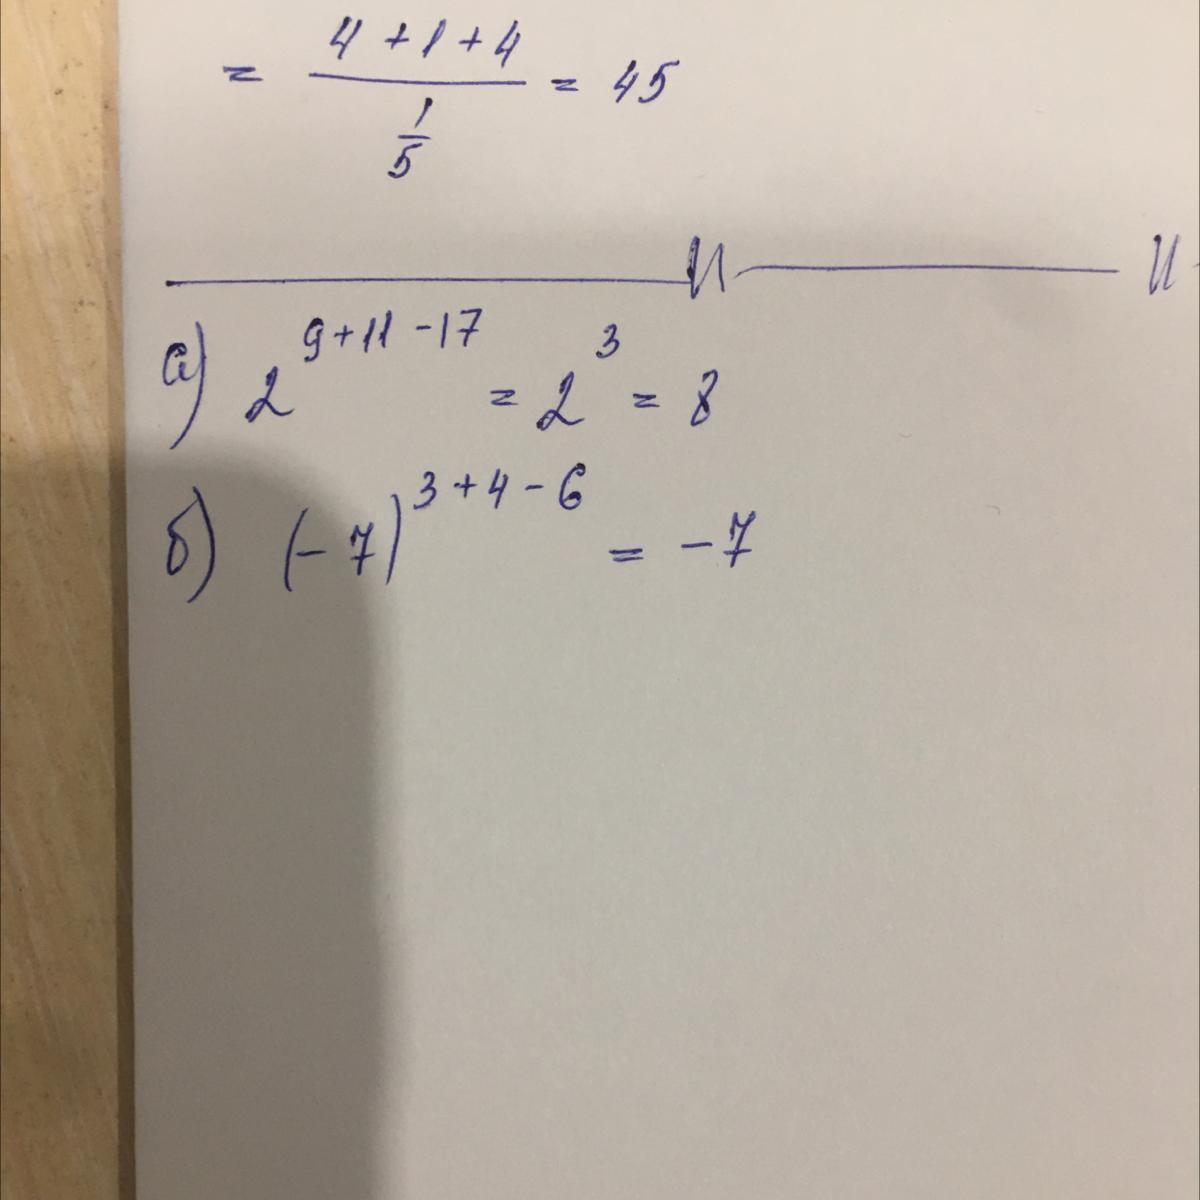 = (4 + 1 + 4) / (1/5) = 45
а) 2^(9+11-17) = 2^3 = 8
б) (-7)^(3+4-6) = -7